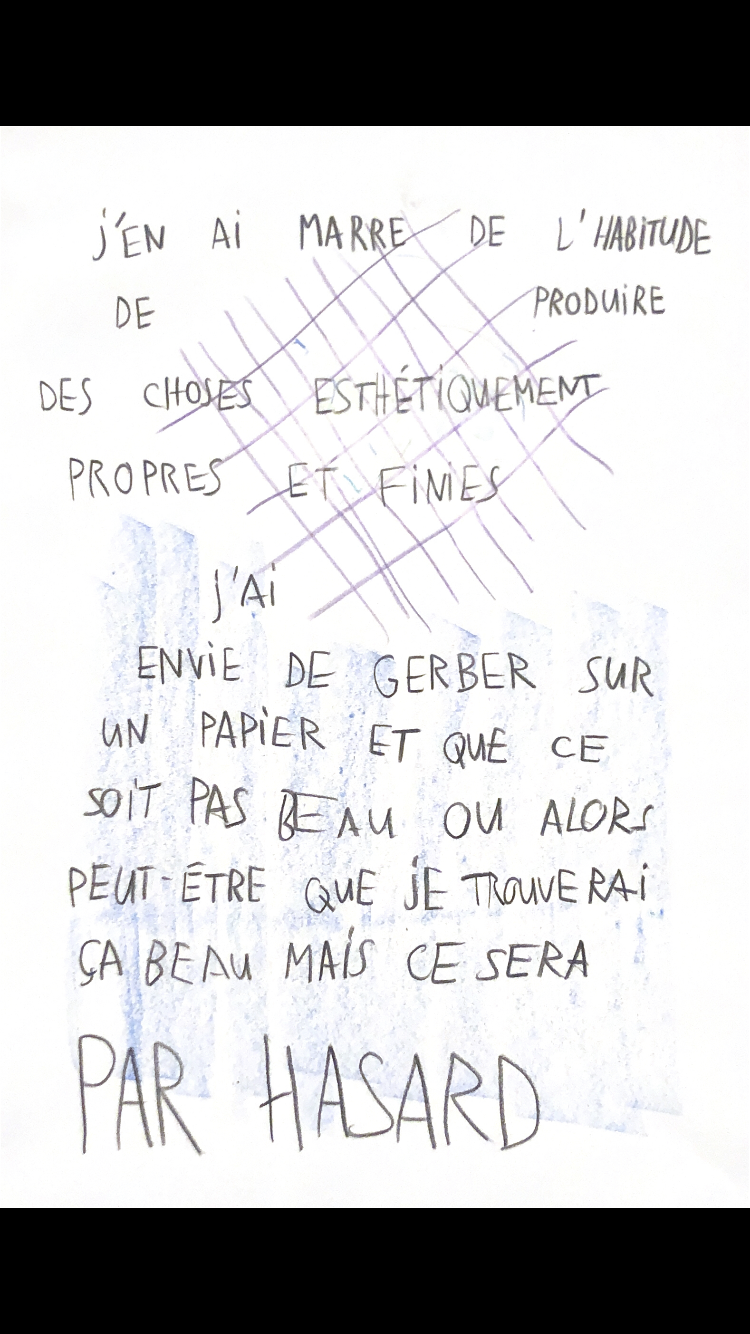 J'EN AI MARRE DE L'HABITUDE
DE PRODUIRE
DES CHOSES ESTHÉTIQUEMENT
PROPRES ET FINIES
J'AI
ENVIE DE GERBER SUR
UN PAPIER ET QUE CE
SOIT PAS BEAU OU ALORS
PEUT-ÊTRE QUE JE TROUVERAI
ÇA BEAU MAIS CE SERA
PAR HASARD